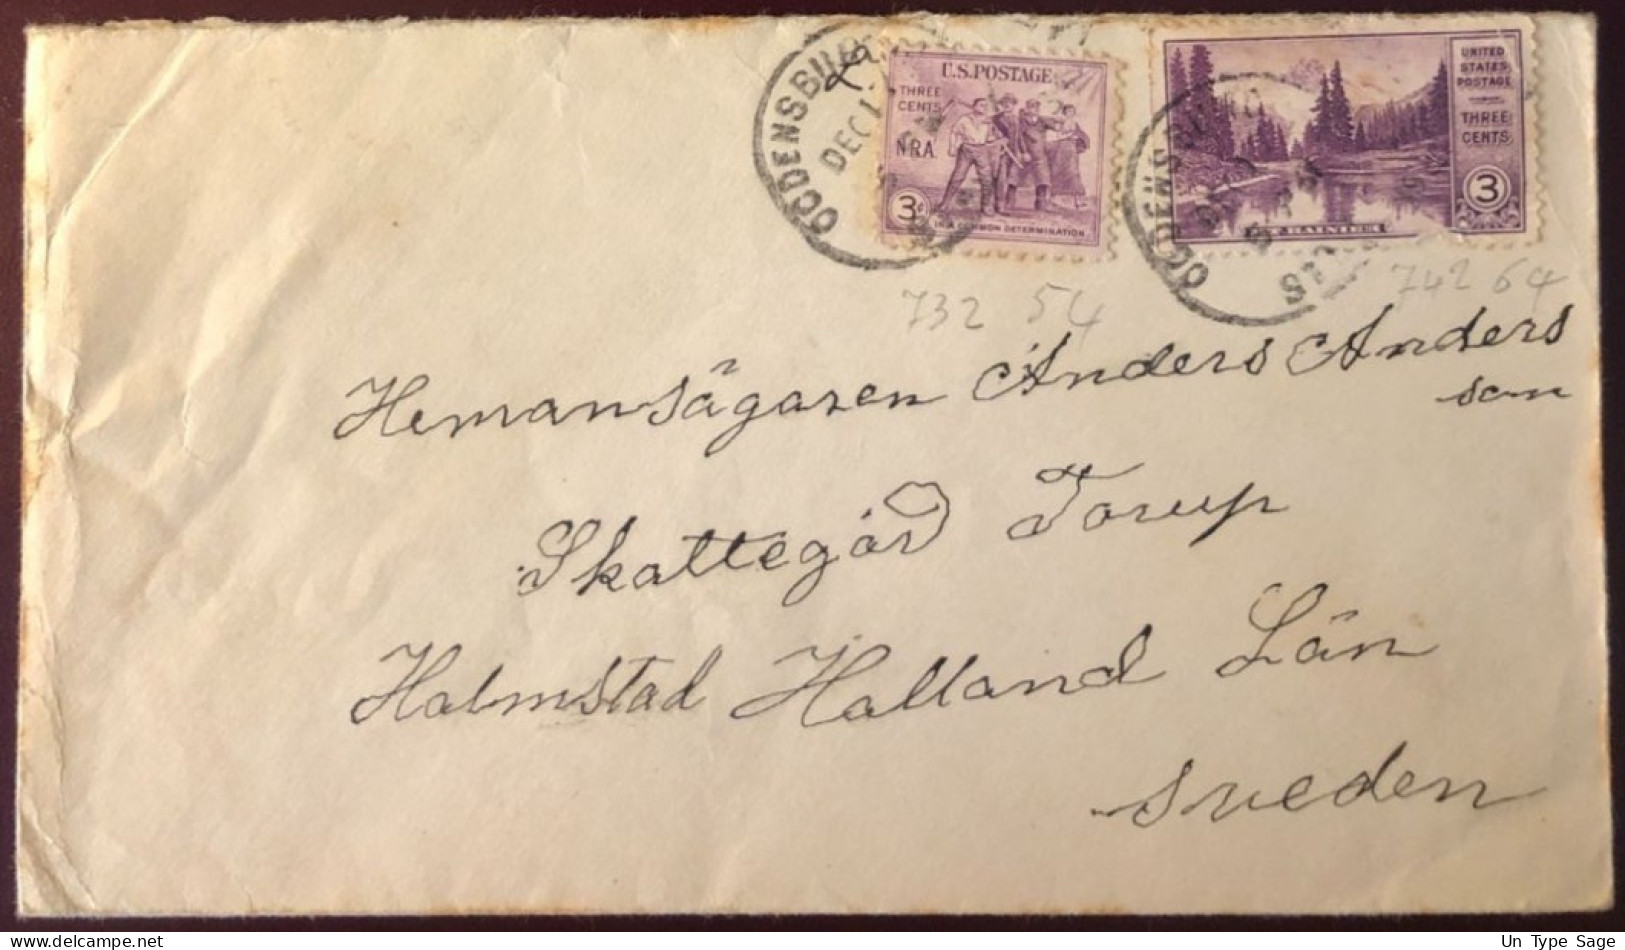 OGDENSBURG
DEC 1
U.S. POSTAGE
THREE
CENTS
NRA
3¢
IN A COMMON DETERMINATION
OGDENSBURG
UNITED
STATES
POSTAGE
THREE
CENTS
3
MT. RAINIER
732 54
742 64
Hemansägaren Anders Anders
son
Skattegård Torup
Halmstad Halland Län
Sweden
Un Type Sage